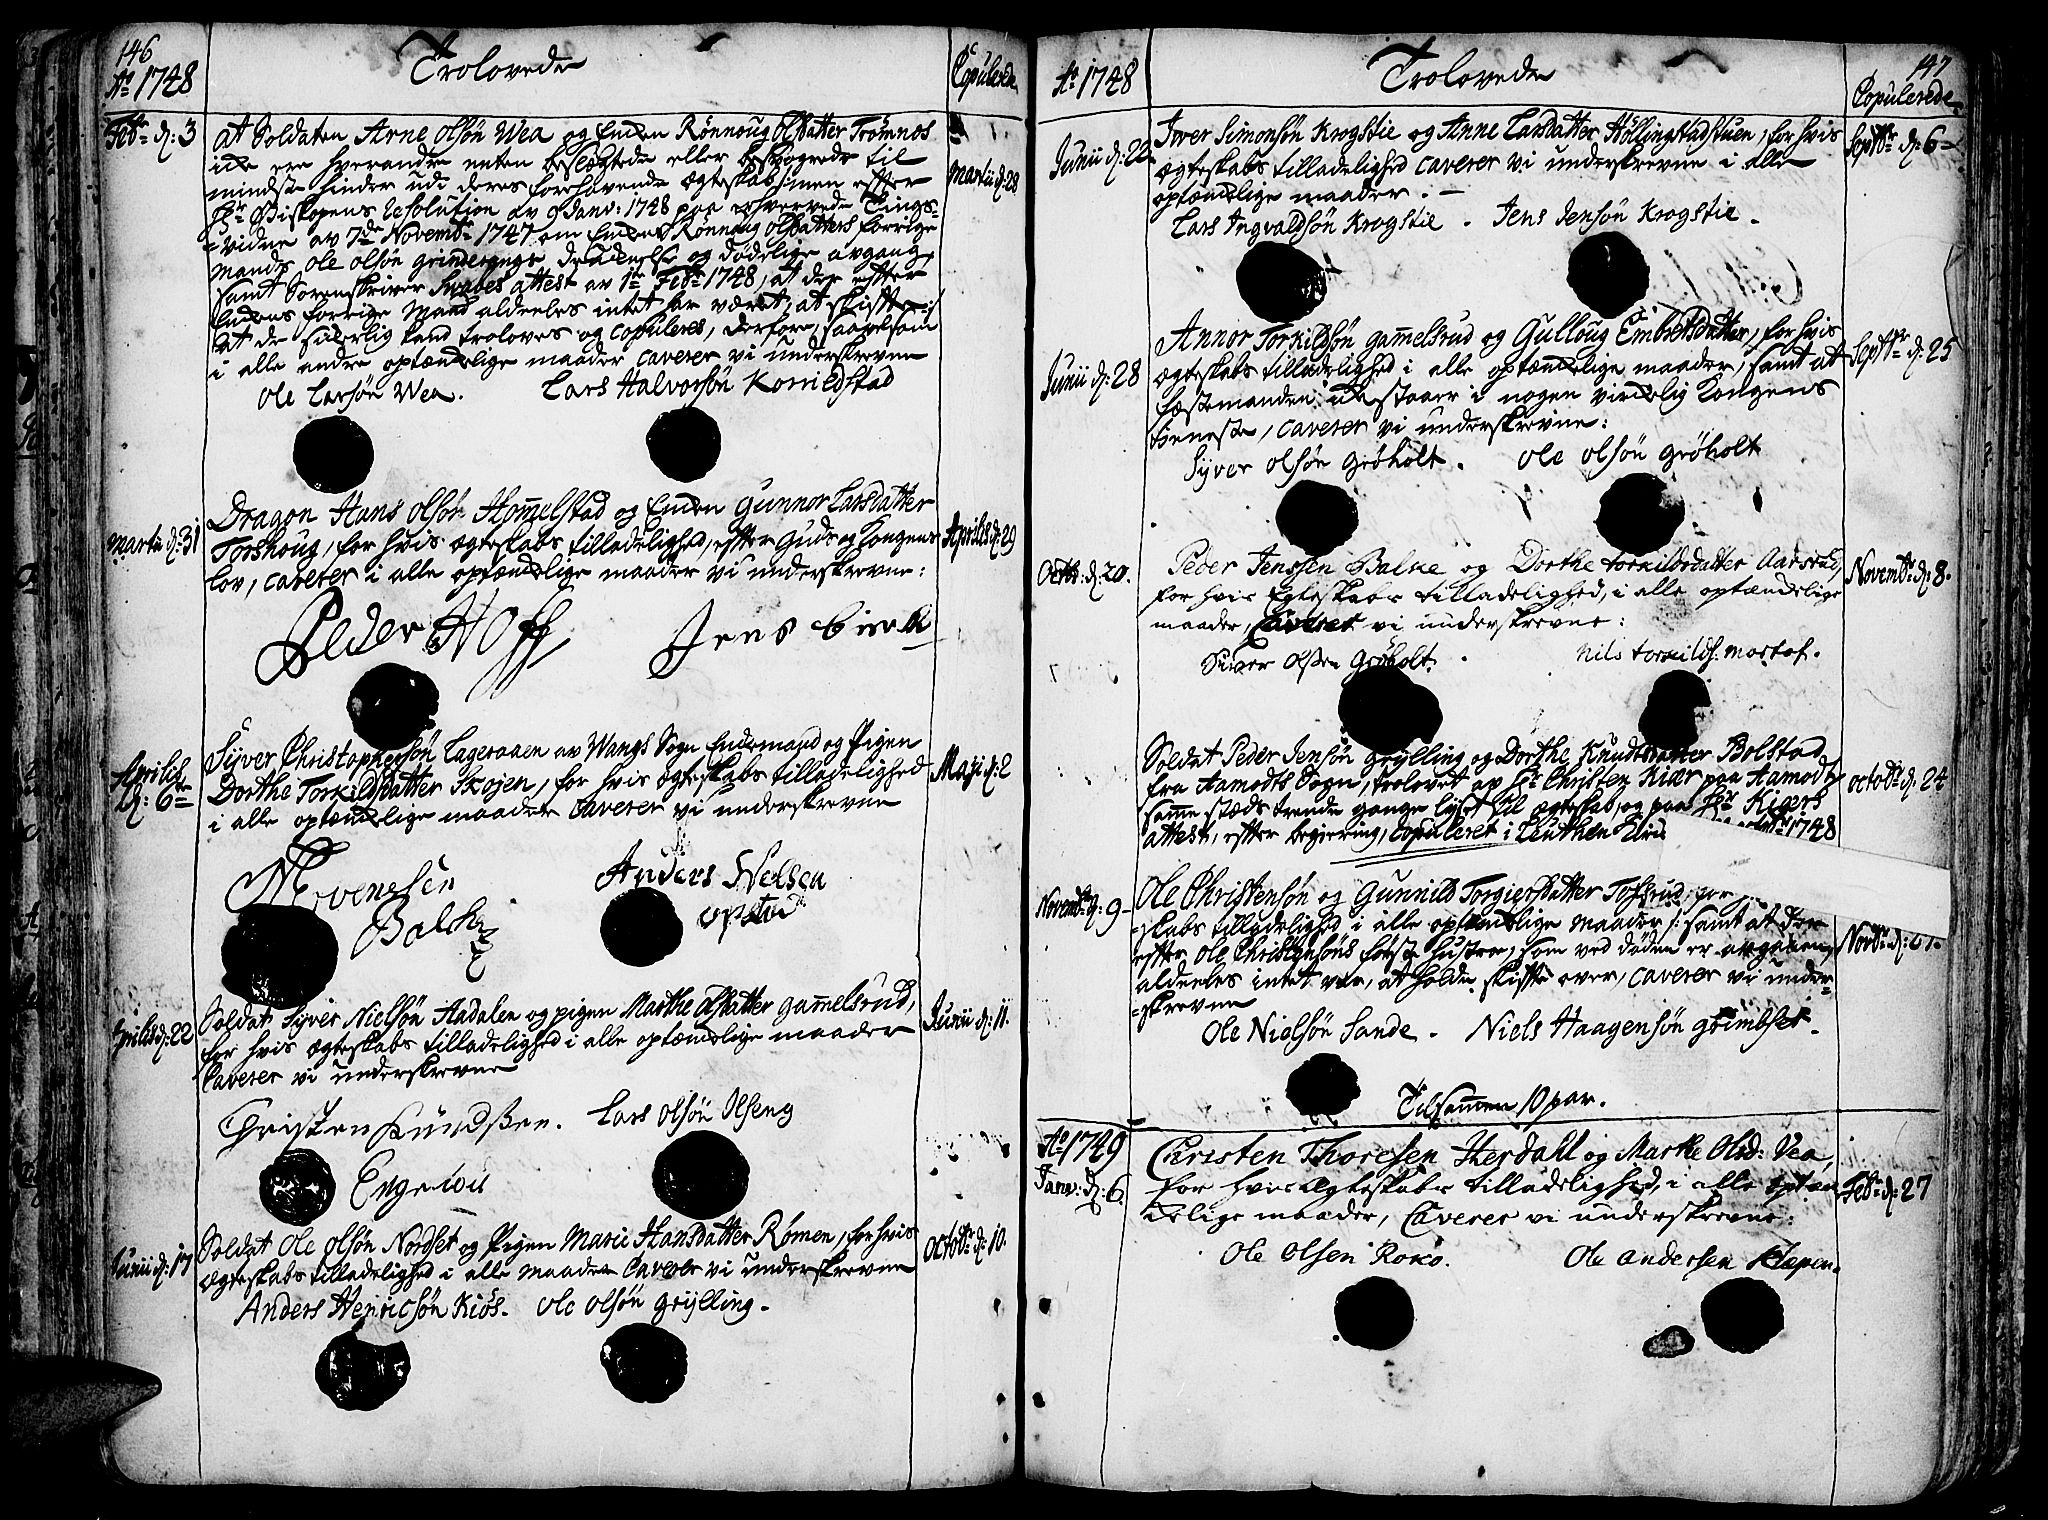 146
Aº 1748
Trolovede
Copulerede
Febr: d: 3
at Soldaten Arne Olsøn Wea og Enken Rønnoug Olsdatter Trømnes
icke ere hverandre enten beslægtede eller besvogrede til
mindste hinder udi deres forehavende ægteskab; men efter
Hr Biskopens Resolution av 9 Janv: 1748 paa erhvervede Tings-
=vidne av 7de Novembr 1747 om Enkens Rønnoug Olsdatters forrige
Mands Ole Olsøn Grinderengs og dødelige avgang,
samt Sorenskriver Svabes attest av 1te Febr 1748, at der efter
Enkens forrige Mand aldeeles intet har været, at skifte:/
at de sikkerlig kand troloves og copuleres, derfore, saavelsom
i alle andre optænkelige maader caverer vi underskrevne
Martii d: 28
Ole Larsøn Wea.
Lars Halvorsøn Korrildstad
Martii d: 31
Dragon Hans Olsøn Hommelstad og Enken Gunnor Larsdatter
Torshoug, for hvis ægteskabs tilladelighed, efter Guds og Kongens
lov, caverer i alle optænkelige maader vi underskrevne:
Aprilis d: 29
Peder Hoff
Jens
Aprilis
d: 6te
Syver Christophersøn Lageraaen av Wangs Sogn Enkemand og Pigen
Dorthe Torkildsdatter Skojen, for hvis ægteskabs tilladelighed
i alle optænkelige maader caverer vi underskrevne
Maji d: 2
Anders Nielsen
opstad
Aprilis d: 22
Soldat Syver Nielsøn Aadalen og pigen Marthe Olsdatter Gammelsrud,
for hvis ægteskabs tilladelighed i alle optænkelige maader
caverer vi underskrevne
Junii d: 11.
Christen Knudssen.
Lars Olsøn Olseng
Junii d: 17
Soldat Ole Olsøn Nordset og Pigen Marie Hansdatter Rømen, for hvis
ægteskabs tilladelighed i alle maader caverer vi underskrevne
Octobr d: 10.
Anders Henricsøn Kiøs.
Ole Olsøn Grylling.
147
Aº 1748
Trolovede
Copulerede
Junii d: 22
Iver Simonsøn Krogstie og Anne Larsdatter Hollingstadstuen, for hvis
ægteskabs tilladelighed caverer vi underskrevne i alle
optænkelige maader.
Septbr d: 6
Lars Ingvaldsøn Krogstie.
Jens Jensøn Krogstie.
Junii d: 28
Annor Torkildsøn Gammelsrud og Gulloug Embretsdatter, for hvis
ægteskabs tilladelighed i alle optænkelige maader, samt at
Fæstemanden icke staaer i nogen virkelig Kongens
tieneste, caverer vi underskrevne:
Septbr d: 25
Syver Olsøn Grøholt.
Ole Olsøn Grøholt
Octbr: d: 20.
Peder Jenssen Balke og Dorthe torkildsdatter Aarsrud,
for hvis Egteskabs tilladelighed, i alle optænkelige
maader, Caverer vi underskrevne:
Novembr d: 8.
Siver Olssen Grøholt.
Nils torkilds: mortof.
Soldat Peder Jensøn Grylling og Dorthe Knudtsdatter Bolstad
fra Aamodts Sogn, trolovet ap Hr Christen Kiær paa Aamodt,
samme stæds trende gange lyst til ægteskab, og paa Hr Kiærs
attest, efter begiering, copuleret i Leuthen Kirke 1748
octobr d: 24
Novembr d: 9
Ole Christensøn og Gunnild Torgiersdatter Tofsrud, for
=skabs tilladelighed i alle optænkelige maader /: samt at der
efter Ole Christensøns første hustroe, som ved døden er avgaaen,
aldeeles intet var, at holde skifte over, caverer vi under-
=skrevne
Novbr d: 27.
Ole Nielsøn Sande.
Niels Haagensøn Grimbset.
Tilsammen 10 par.
Aº 1749
Janv: d: 6
Christen Thoresen Herdahl og Marthe Olsd: Vea,
for hvis Egteskabs tilladelighed, i alle optæn
kelige maader, Caverer vi underskrevne:
Febr: d: 27
Ole Olsen Rokø.
Ole Andersen Klæpen.